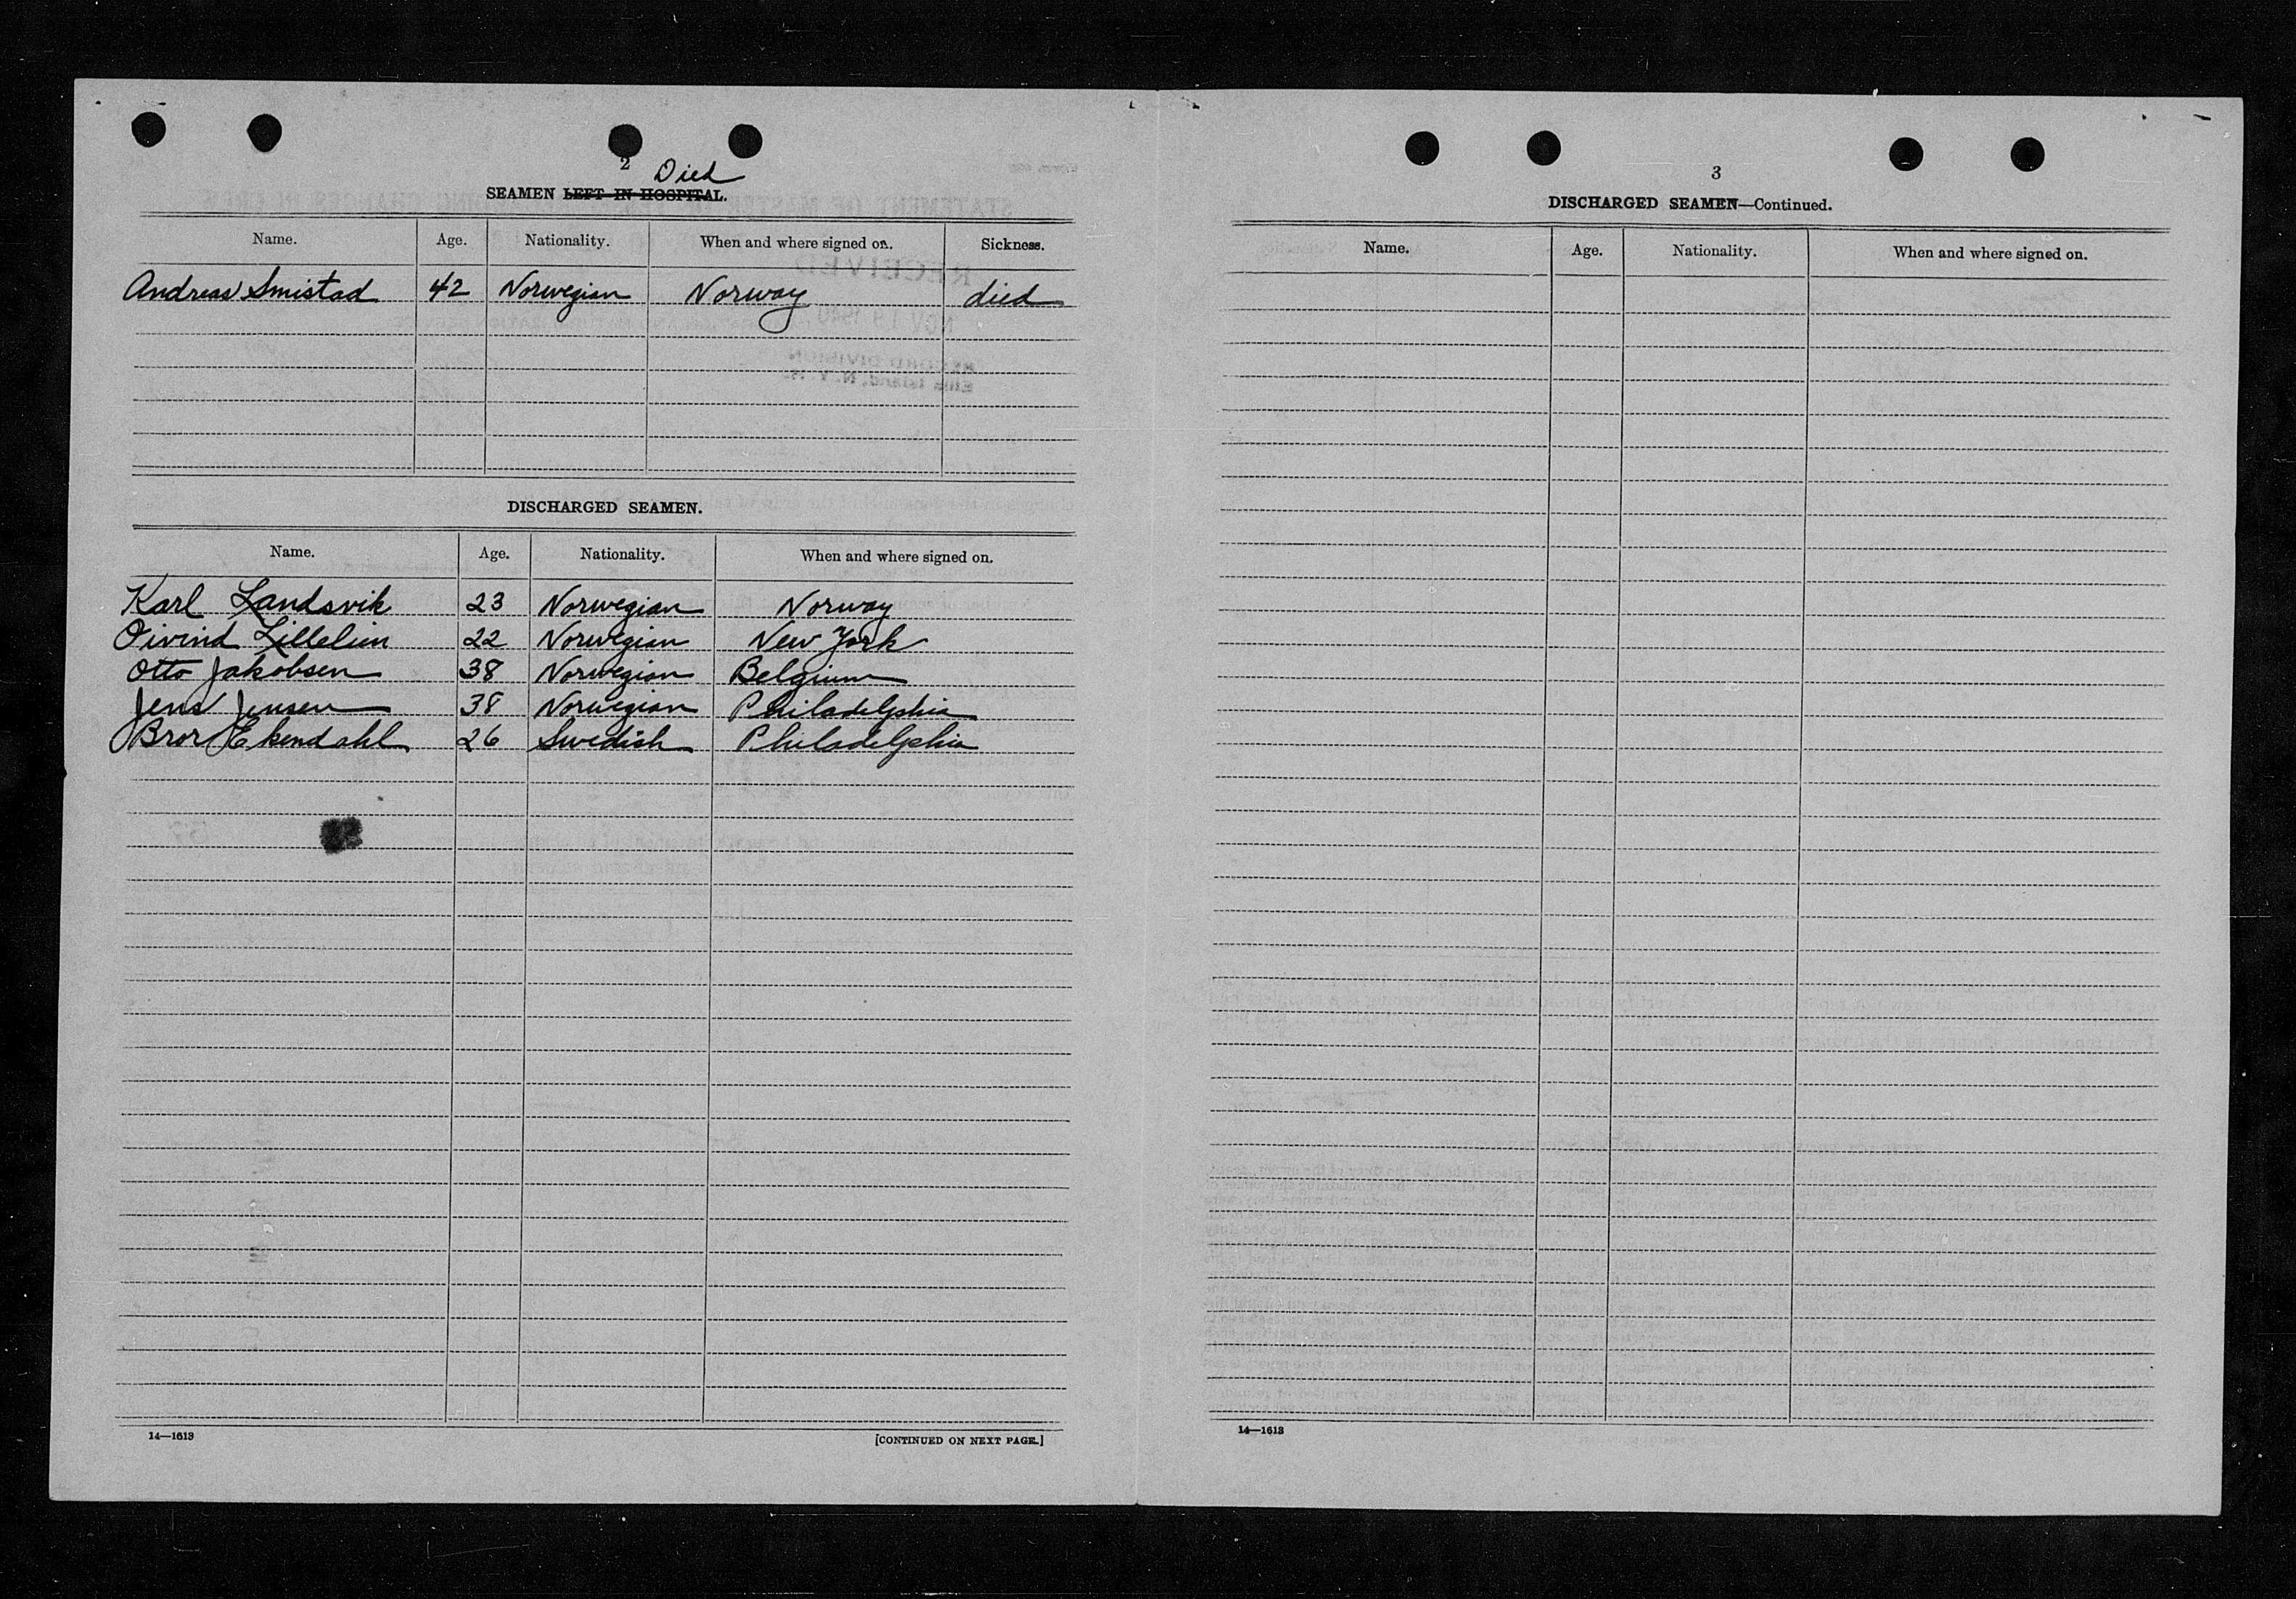 2
Died
SEAMEN LEFT IN HOSPITAL.
Name. Age. Nationality. When and where signed on. Sickness.
Andreas Smistad 42 Norwegian Norway died
DISCHARGED SEAMEN.
Name. Age. Nationality. When and where signed on.
Karl Landsvik 23 Norwegian Norway
Oivind Lillelien 22 Norwegian New York
Otto Jakobsen 38 Norwegian Belgium
Jens Jensen 38 Norwegian Philadelphia
Bror Ekendahl 26 Swedish Philadelphia
14—1613 [CONTINUED ON NEXT PAGE.]
3
DISCHARGED SEAMEN—Continued.
Name. Age. Nationality. When and where signed on.
14—1613